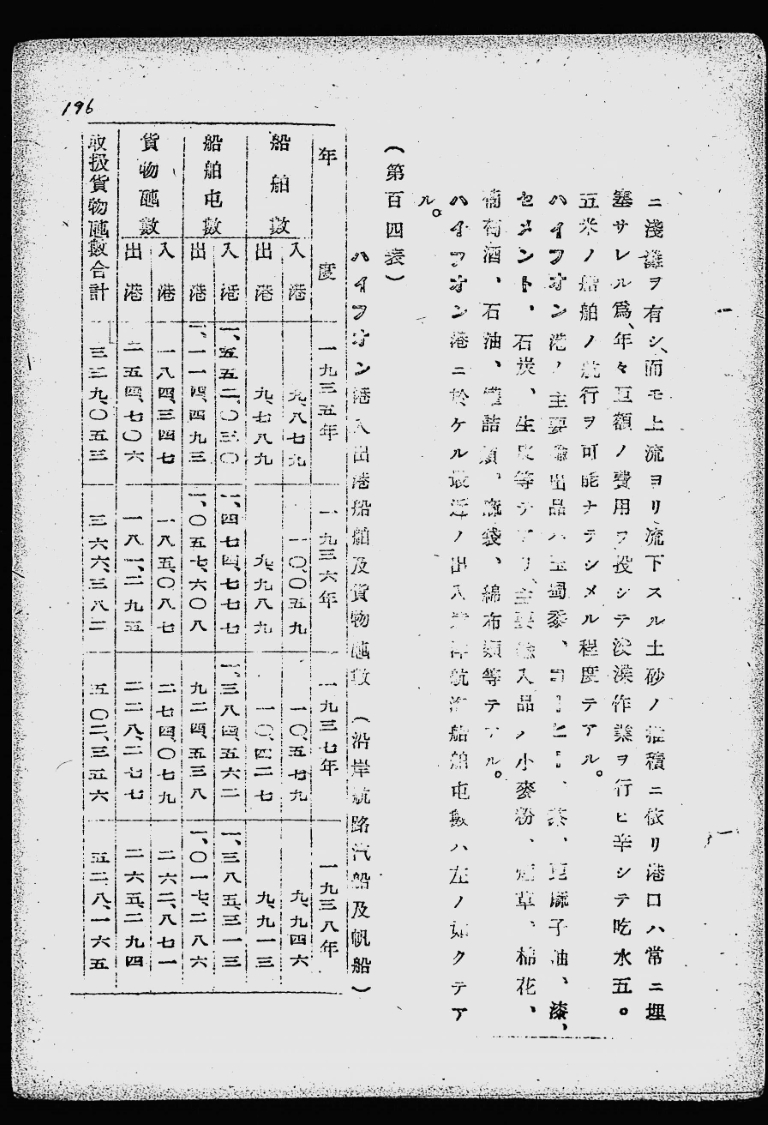 196
ニ淺灘ヲ有シ、而モ上流ヨリ流下スル土砂ノ推積ニ依リ港口ハ常ニ埋
塞サレル爲、年々巨額ノ費用ヲ投シテ浚渫作業ヲ行ヒ辛シテ吃水五。
五米ノ船舶ノ航行ヲ可能ナラシメル程度テアル。
ハイフオン港ノ主要輸出品ハ玉蜀黍、コーヒー、茶、蓖麻子油、漆、
セメント、石炭、生皮等テアリ、主要輸入品ハ小麥粉、煙草、棉花、
葡萄酒、石油、罐詰類、麻袋、綿布類等テアル。
ハイフオン港ニ於ケル最近ノ出入港 航 船舶屯數ハ左ノ如クテア
ル。
(第百四表)
ハイフオン港入出港船舶及貨物瓲數(沿岸航路汽船及帆船)
年度 一九三五年 一九三六年 一九三七年 一九三八年
船舶數 入港 九、八七九 一〇、〇五九 一〇、五七九 九、九四六
出港 九、七八九 九、九八九 一〇、四二七 九、九一三
船舶屯數 入港 一、五五二、〇三〇 一、四七四、七七七 一、三八四、五六二 一、三八五、三一三
出港 一、一一四、四九三 一、〇五七、六〇八 九二四、五三八 一、〇一七、二八六
貨物瓲數 入港 一八四、三四七 一八五、〇八七 二七四、〇七九 二六二、八七一
出港 二五四、七〇六 一八一、二九五 二二八、二七七 二六五、二九四
取扱貨物瓲數合計 三三九、〇五三 三六六、三八二 五〇二、三五六 五二八、一六五